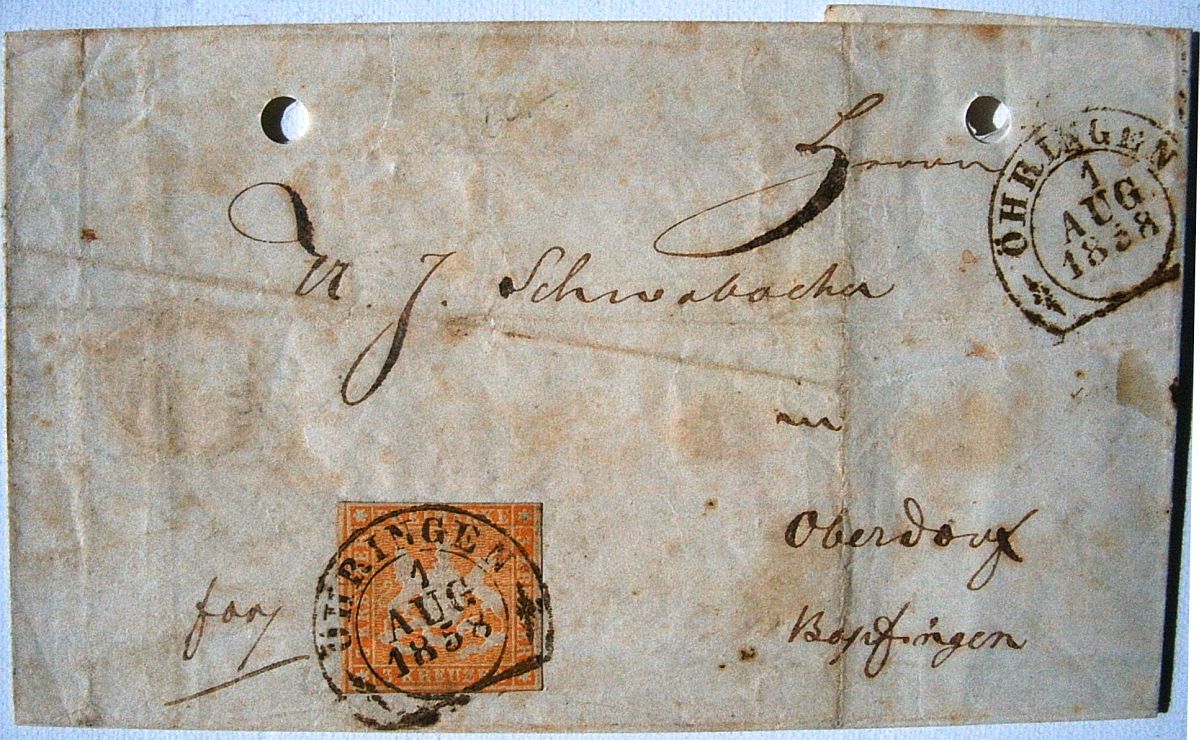 Herrn
M. J. Schwabacher
in
Oberdorf
Bopfingen
ÖHRINGEN
1
AUG
1858
ÖHRINGEN
1
AUG
1858
3 KREUZ